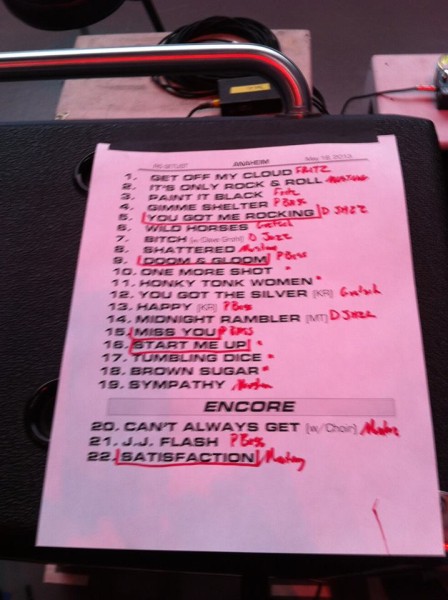 RS SETLIST ANAHEIM May 18, 2013
1. GET OFF MY CLOUD FRITZ
2. IT'S ONLY ROCK & ROLL MUSTANG
3. PAINT IT BLACK Fritz
4. GIMME SHELTER P Bass
5. YOU GOT ME ROCKING D JAZZ
6. WILD HORSES Gretsch
7. BITCH (w/ Dave Grohl) D Jazz
8. SHATTERED Mustang
9. DOOM & GLOOM P Bass
10. ONE MORE SHOT "
11. HONKY TONK WOMEN "
12. YOU GOT THE SILVER (KR) Gretsch
13. HAPPY (KR) P Bass
14. MIDNIGHT RAMBLER (MT) D JAZZ
15. MISS YOU P BASS
16. START ME UP "
17. TUMBLING DICE "
18. BROWN SUGAR "
19. SYMPATHY
ENCORE
20. CAN'T ALWAYS GET (w/Choir)
21. J.J. FLASH P Bass
22. SATISFACTION Mustang